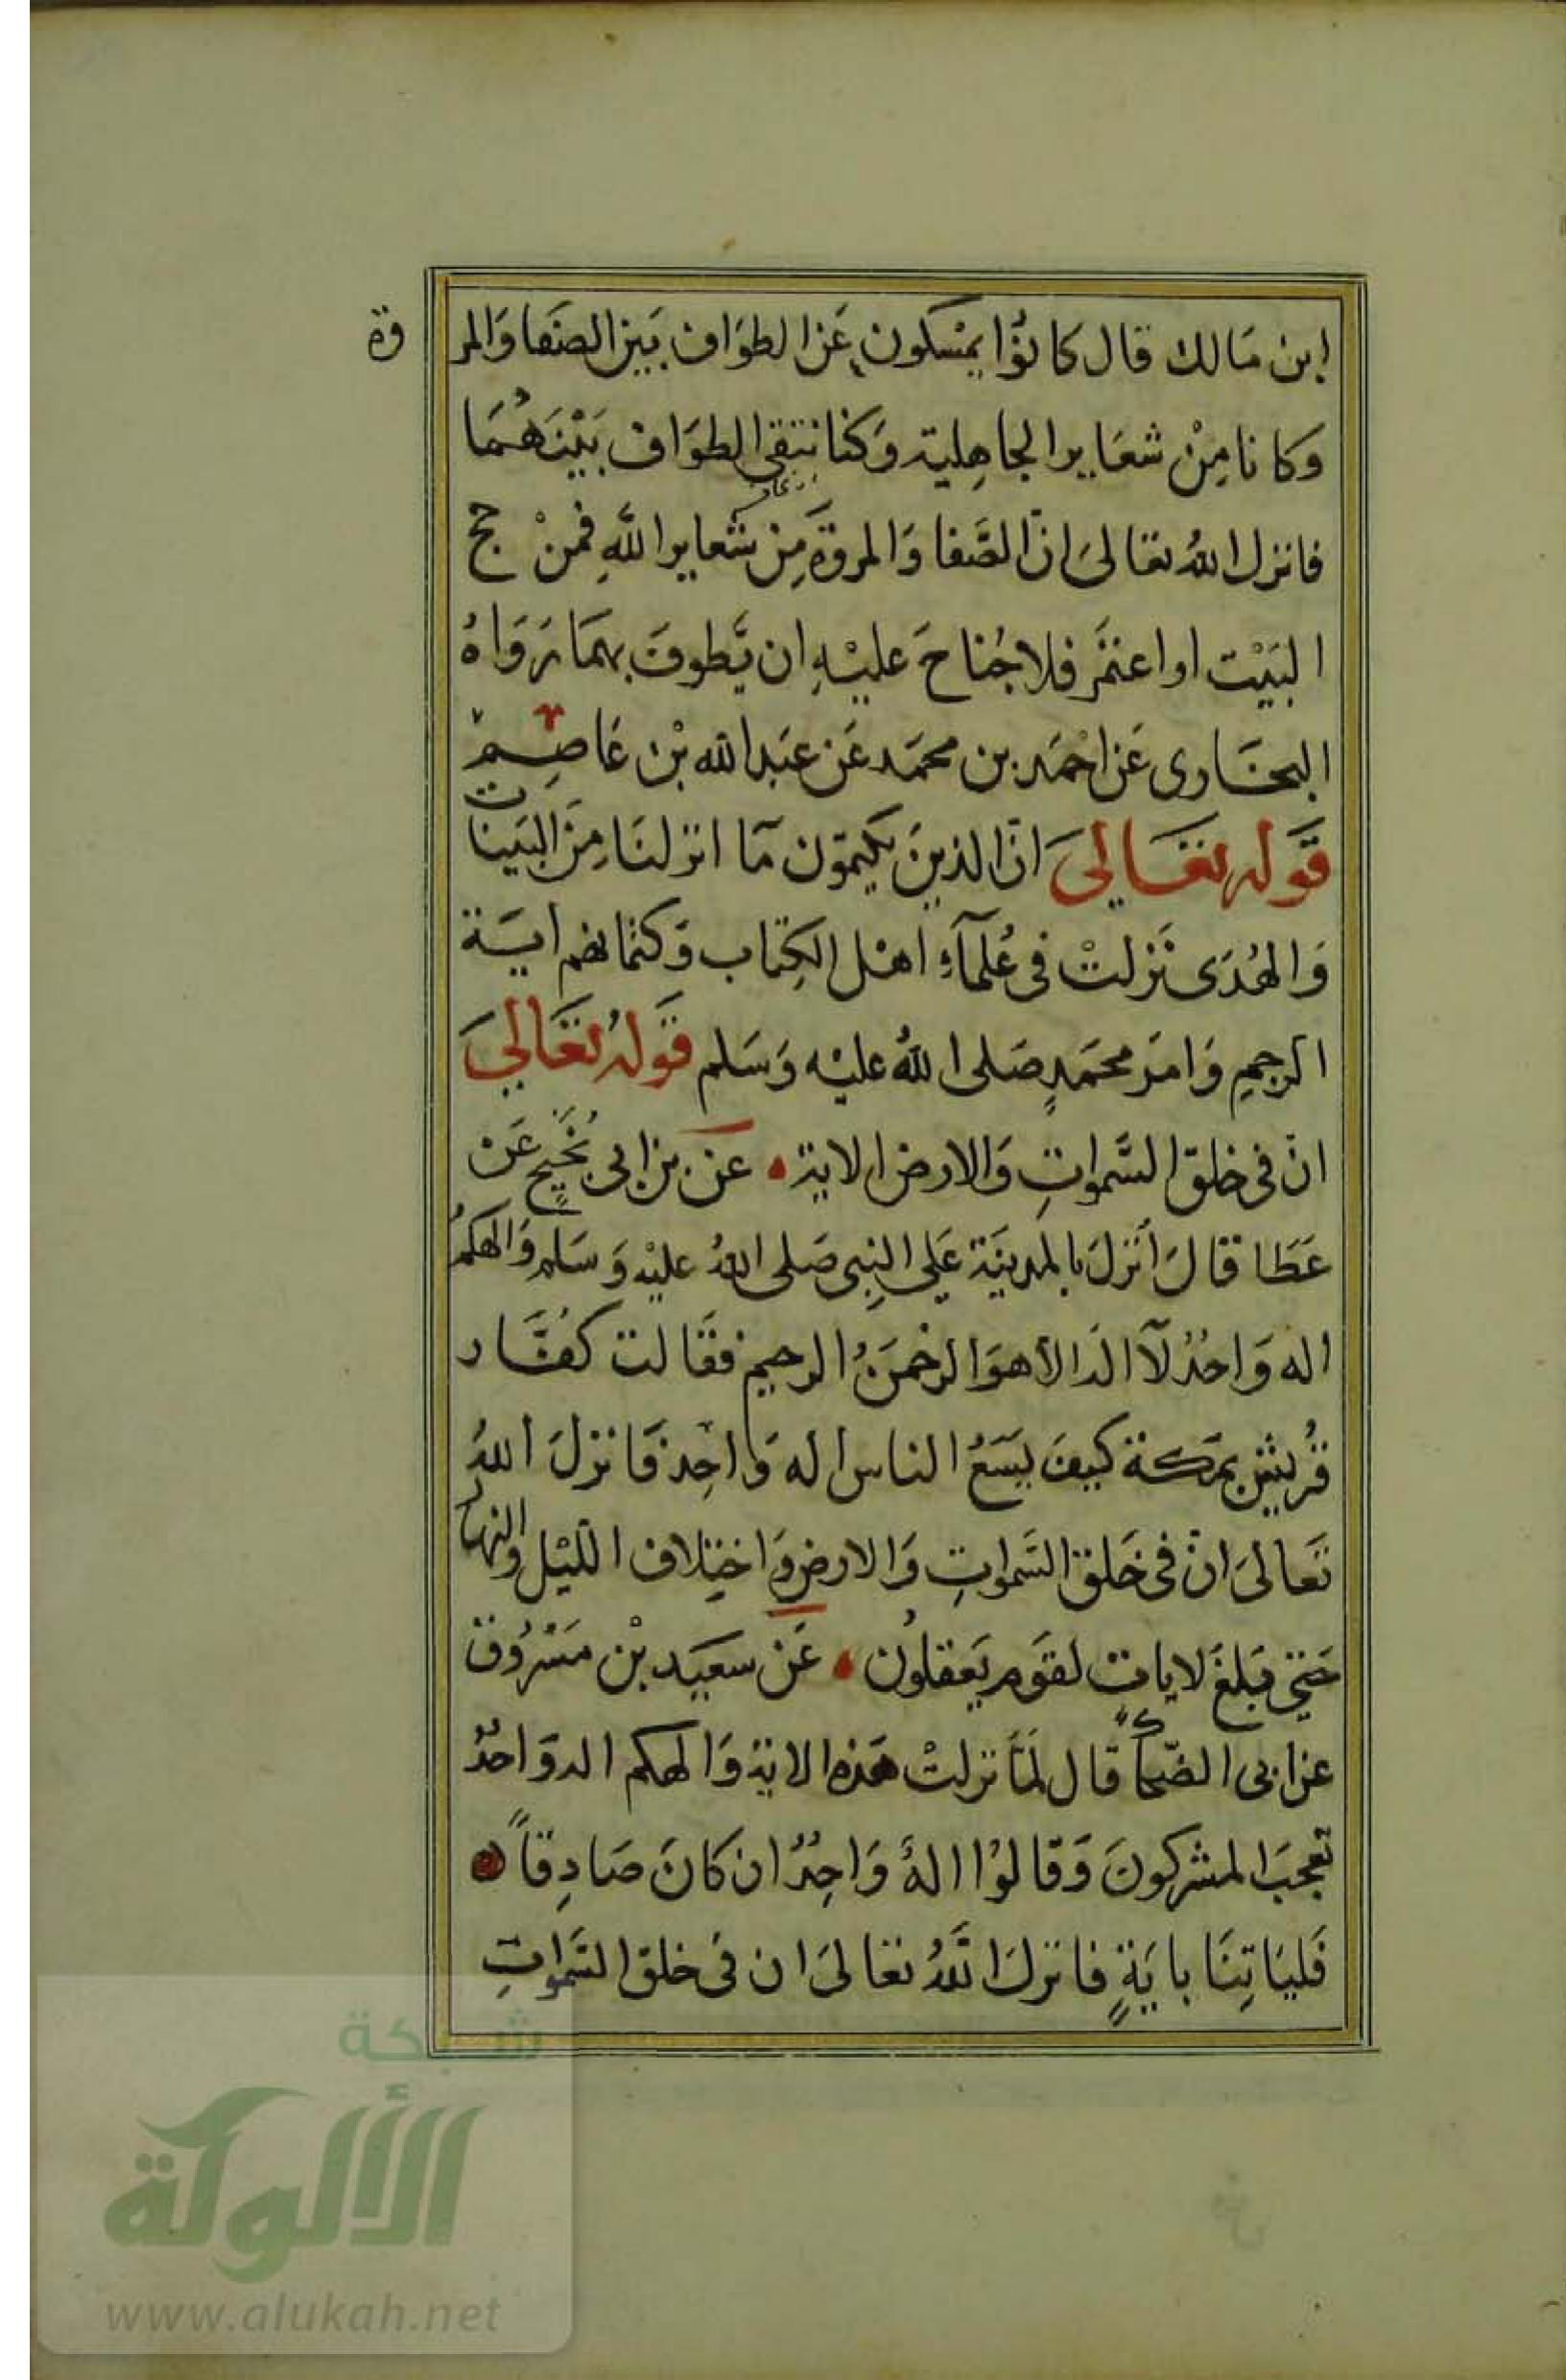 ابن مَالك قال كَانوُا يمْسكون عَن الطوَاف بَين الصَفا وَالمر وة
وَكا نا مِنْ شعَاير الجاهِلية وَكنا نتقى الطوَاف بَيْنَهُمَا
فانزل اللهُ تعالىَ انّ الصَّفا وَالمروَة مِن شعاير اللهِ فمنْ حج
البَيْت او اعتمَر فلا جُناحَ عليْهِ ان يَّطوفَ بهمَا رَوَاهُ
البخَارى عَن احْمَد بن محمَد عَن عبَد الله بْن عَاصِمْ
قَوله تعَالىَ انّ الذينَ يكتمون مَا انزلنَا مِنَ البَينات
وَالهُدَى نَزلتْ فى عُلمَآءِ اهْل الكِتاب وَكتمانهم ايَة
الرجمِ وَامَر محمَدٍ صَلى اللهُ عليْه وَسَلم قَولهُ تعَالىَ
انّ فى خلق السَّمواتِ وَالارض الاية عَن بن ابى نجَيحٍ عَنْ
عَطَا قالَ انزلَ بالمدينَة عَلى النِبى صَلى اللهُ عليْه وَسَلم وَالهكمُ
اله وَاحدُ لآ اله الا هوَ الرحْمَنُ الرحيم فقَالت كفَّار
قُريْش بمَكة كيفَ يسَعُ الناس اله وَاحِد فَانزلَ اللهُ
تعَالىَ انّ فى خَلق السَّمواتِ وَالارض وَاختِلاف اللّيْل والنهار
حَتى بَلغَ لايات لقوَم يَعقلوُن عَنْ سعيَد بْن مَسْرُوق
عن ابى الضّحا قال لمَّا نزلتْ هَذه الاية وَالهكم اله وَاحدُ
تعجبَ المشركونَ وَقالوُا الهُ وَاحِدُ ان كانَ صَادِقاً
فَليَاتِنَا بايَةٍ فانزلَ اللَّهُ تعَالىَ ان فى خلق السَّمواتِ
شبكة
الألوكة
www.alukah.net